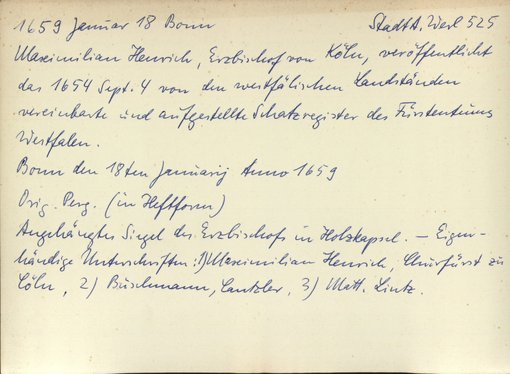 1659 Januar 18 Bonn StadtA. Werl 525
Maximilian Henrich, Erzbischof von Köln, veröffentlicht
das 1654 Sept. 4 von den westfälischen Landständen
vereinbarte und aufgestellte Schatzregister des Fürstentums
Westfalen.
Bonn den 18ten Januarij Anno 1659
Orig. Perg. (in Heftform)
Angehängtes Siegel des Erzbischofs in Holzkapsel. – Eigen-
händige Unterschriften: 1) Maximilian Henrich, Churfürst zu
Cöln, 2) Buschmann, Cantzler, 3) Matt. Lintz.